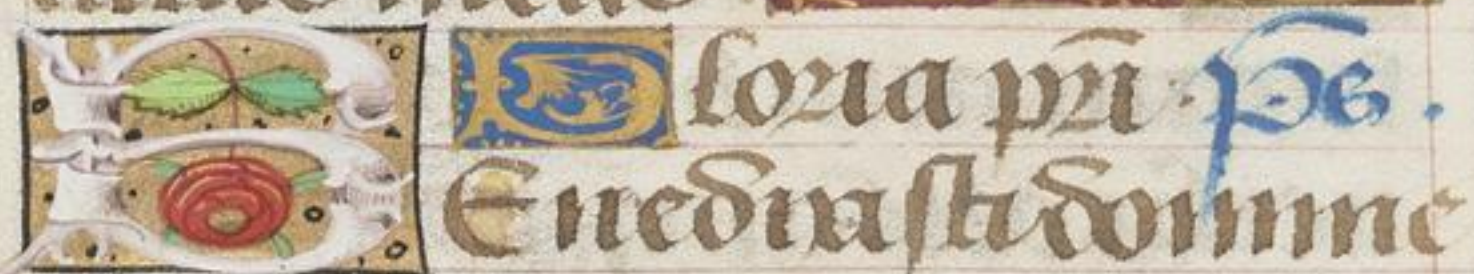 Gloria pr̄i · Ps .
BEnedixisti domine